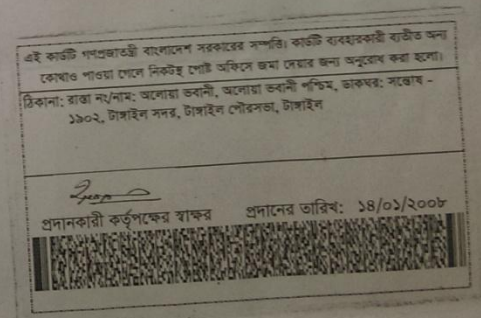 এই কার্ডটি গণপ্রজাতন্ত্রী বাংলাদেশ সরকারের সম্পত্তি। কার্ডটি ব্যবহারকারী ব্যতীত অন্য
কোথাও পাওয়া গেলে নিকটস্থ পোষ্ট অফিসে জমা দেয়ার জন্য অনুরোধ করা হলো।
ঠিকানা: রাস্তা নং/নাম: অলোয়া ভবানী, অলোয়া ভবানী পশ্চিম, ডাকঘর: সন্তোষ -
১৯০২, টাঙ্গাইল সদর, টাঙ্গাইল পৌরসভা, টাঙ্গাইল
প্রদানকারী কর্তৃপক্ষের স্বাক্ষর প্রদানের তারিখ: ১৪/০১/২০০৮